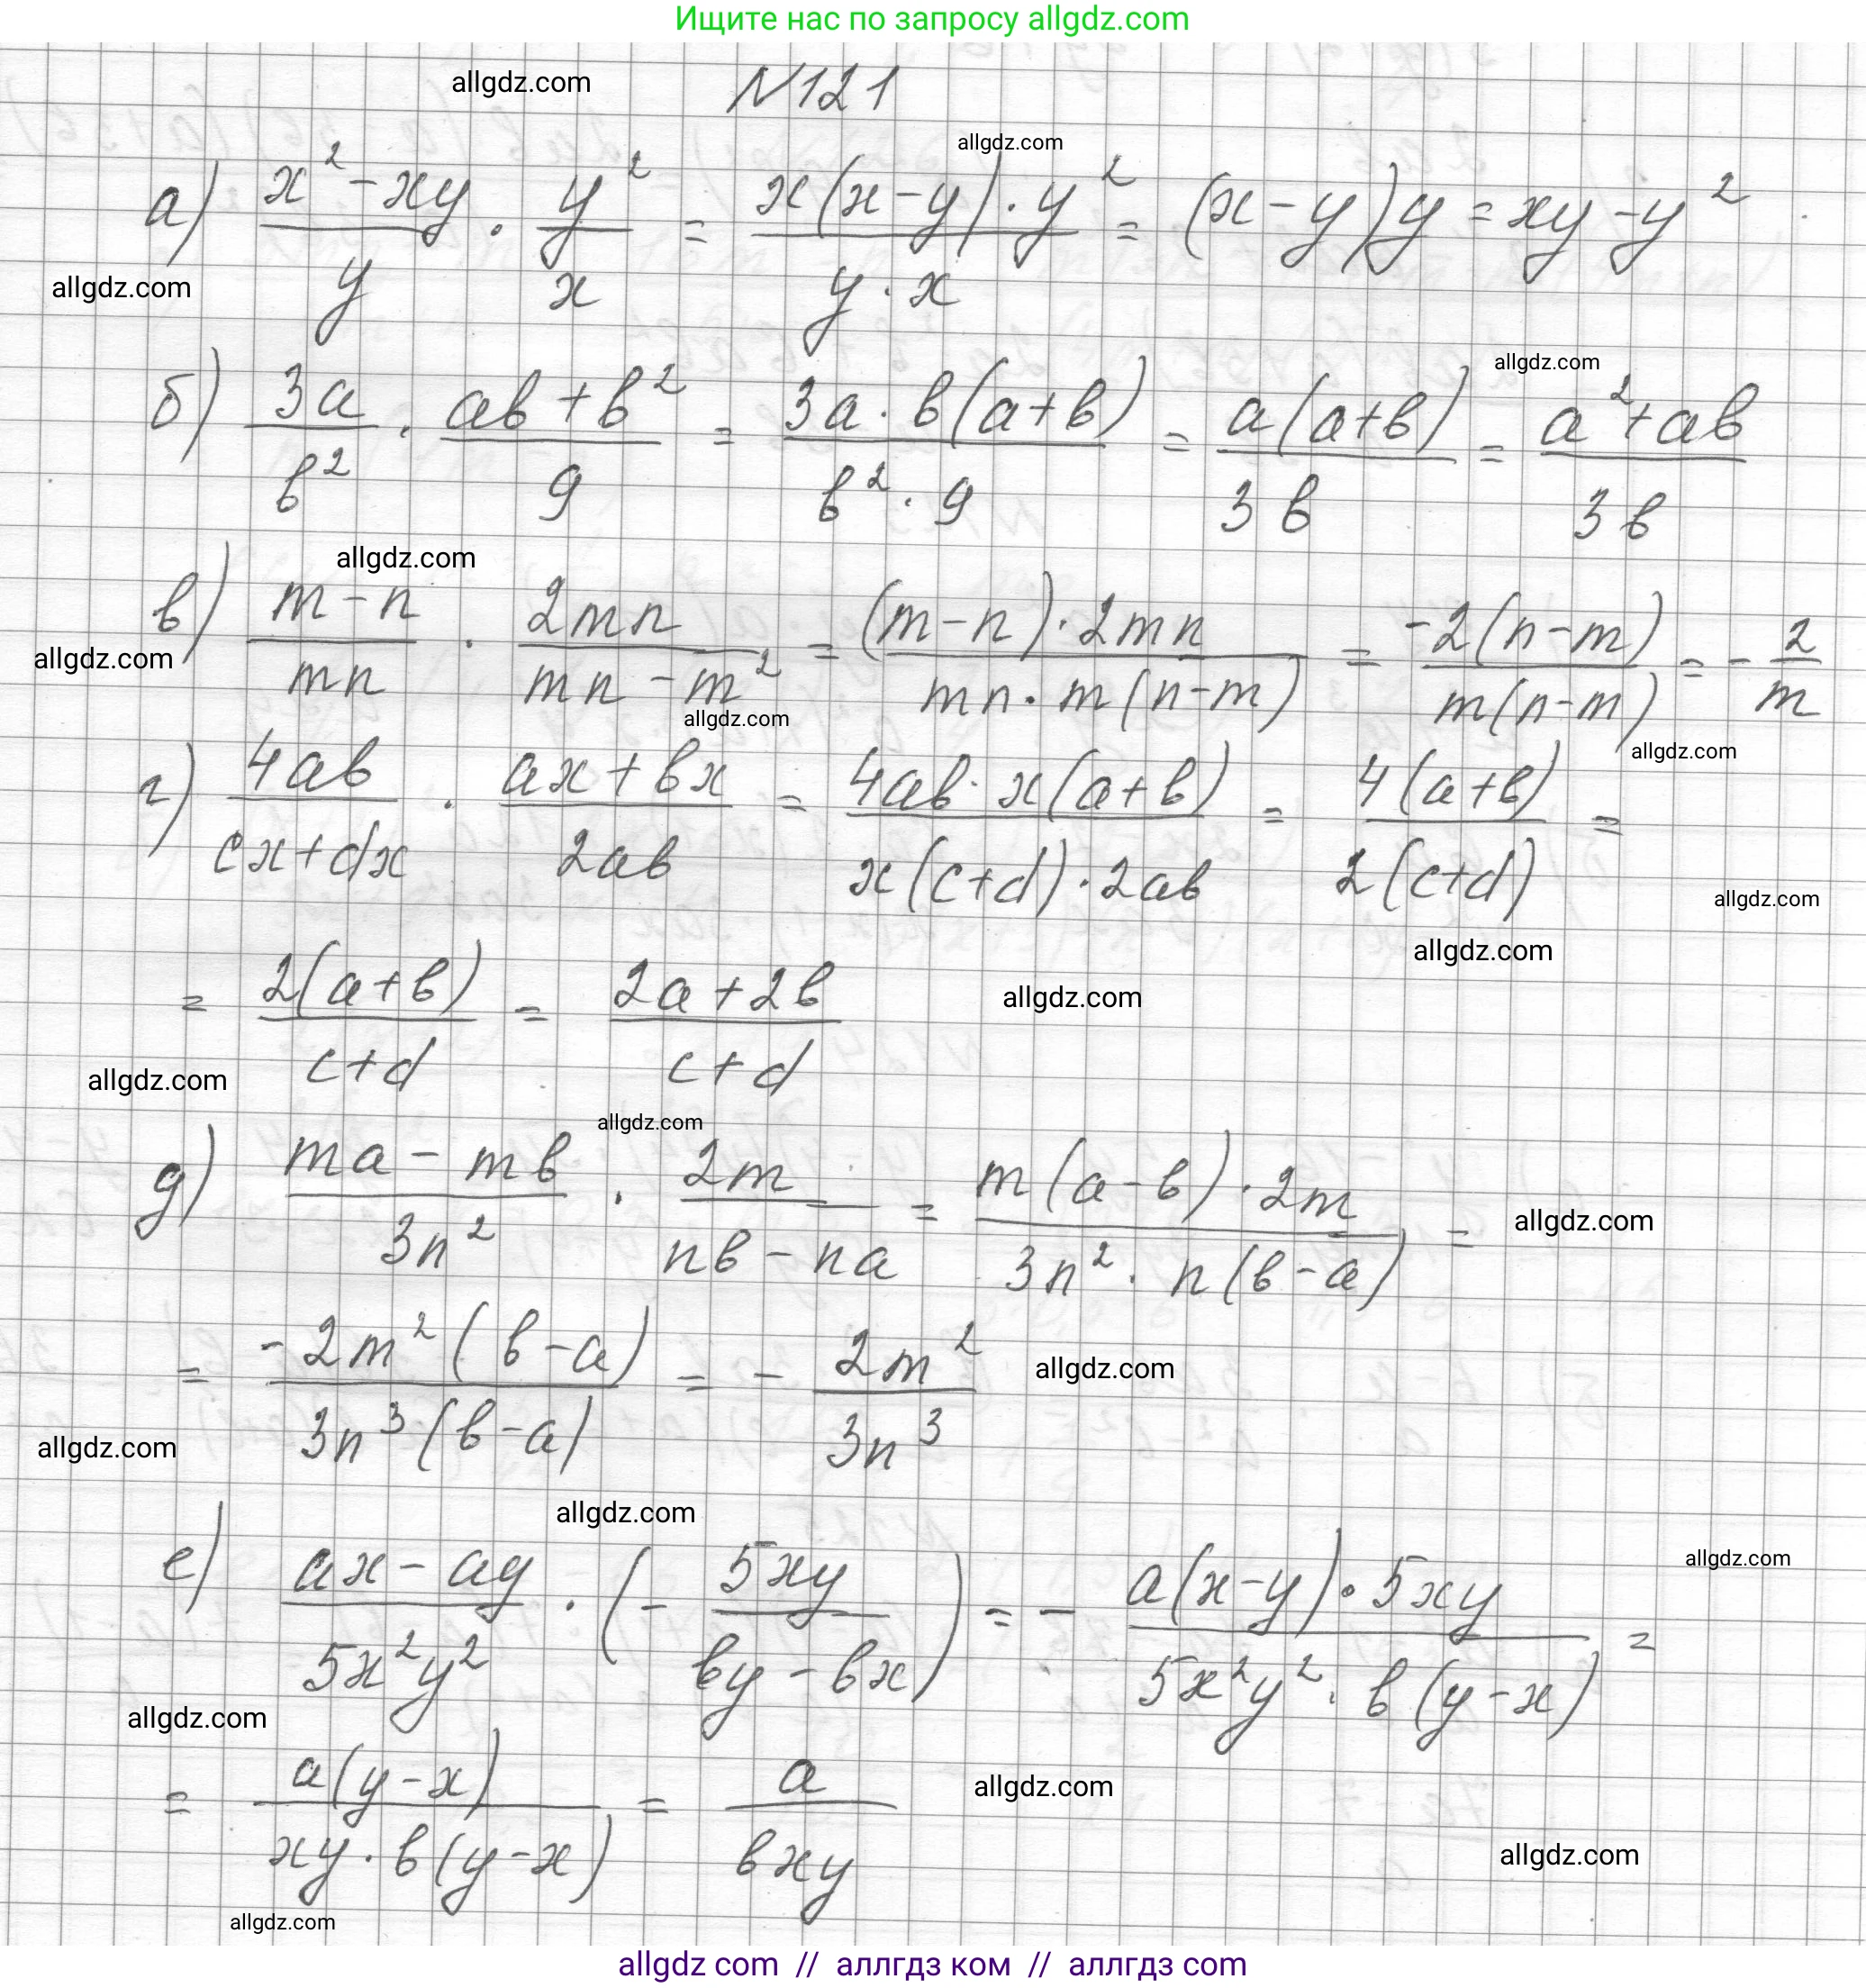 Ищите нас по запросу allgdz.com
allgdz.com
N121
allgdz.com
а) \frac{x^2-xy}{y} \cdot \frac{y^2}{x} = \frac{x(x-y) \cdot y^2}{y \cdot x} = (x-y)y = xy-y^2
allgdz.com
allgdz.com
б) \frac{3a}{b^2} \cdot \frac{ab+b^2}{9} = \frac{3a \cdot b(a+b)}{b^2 \cdot 9} = \frac{a(a+b)}{3b} = \frac{a^2+ab}{3b}
allgdz.com
в) \frac{m-n}{mn} \cdot \frac{2mn}{mn-m^2} = \frac{(m-n) \cdot 2mn}{mn \cdot m(n-m)} = \frac{-2(n-m)}{m(n-m)} = -\frac{2}{m}
allgdz.com
allgdz.com
allgdz.com
г) \frac{4ab}{cx+dx} \cdot \frac{ax+bx}{2ab} = \frac{4ab \cdot x(a+b)}{x(c+d) \cdot 2ab} = \frac{4(a+b)}{2(c+d)} =
allgdz.com
allgdz.com
= \frac{2(a+b)}{c+d} = \frac{2a+2b}{c+d}
allgdz.com
allgdz.com
allgdz.com
д) \frac{ma-mb}{3n^2} \cdot \frac{2m}{nb-na} = \frac{m(a-b) \cdot 2m}{3n^2 \cdot n(b-a)} =
allgdz.com
= \frac{-2m^2(b-a)}{3n^3(b-a)} = -\frac{2m^2}{3n^3}
allgdz.com
allgdz.com
allgdz.com
е) \frac{ax-ay}{5x^2y^2} \cdot (-\frac{5xy}{by-bx}) = -\frac{a(x-y) \cdot 5xy}{5x^2y^2 \cdot b(y-x)} =
allgdz.com
allgdz.com
= \frac{a(y-x)}{xy \cdot b(y-x)} = \frac{a}{bxy}
allgdz.com
allgdz.com
allgdz.com
allgdz com // аллгдз ком // аллгдз com